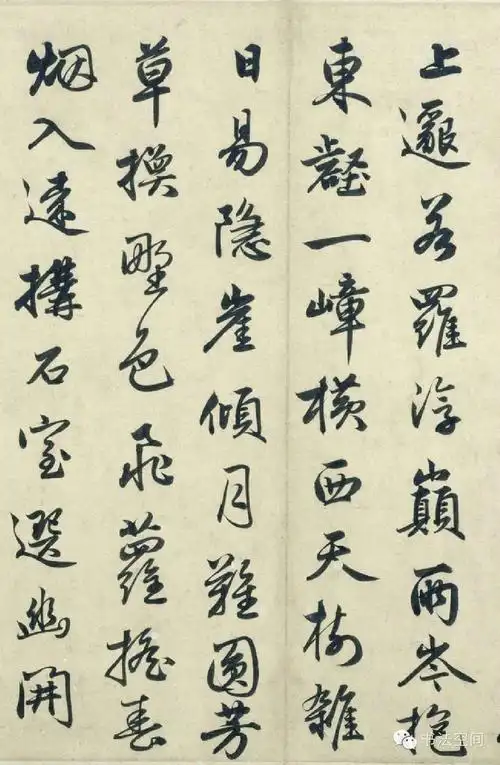 上邈若羅浮巔兩岑抱
東壑一嶂橫西天樹雜
日易隱崖傾月難圓芳
草換野色飛蘿搖春
烟入遠搆石室選幽開
书法空间